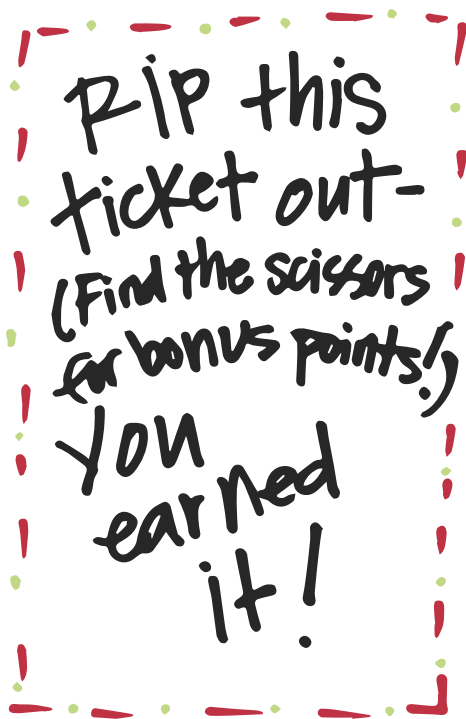 Rip this
ticket out-
(Find the scissors
for bonus points!)
you
earned
it!